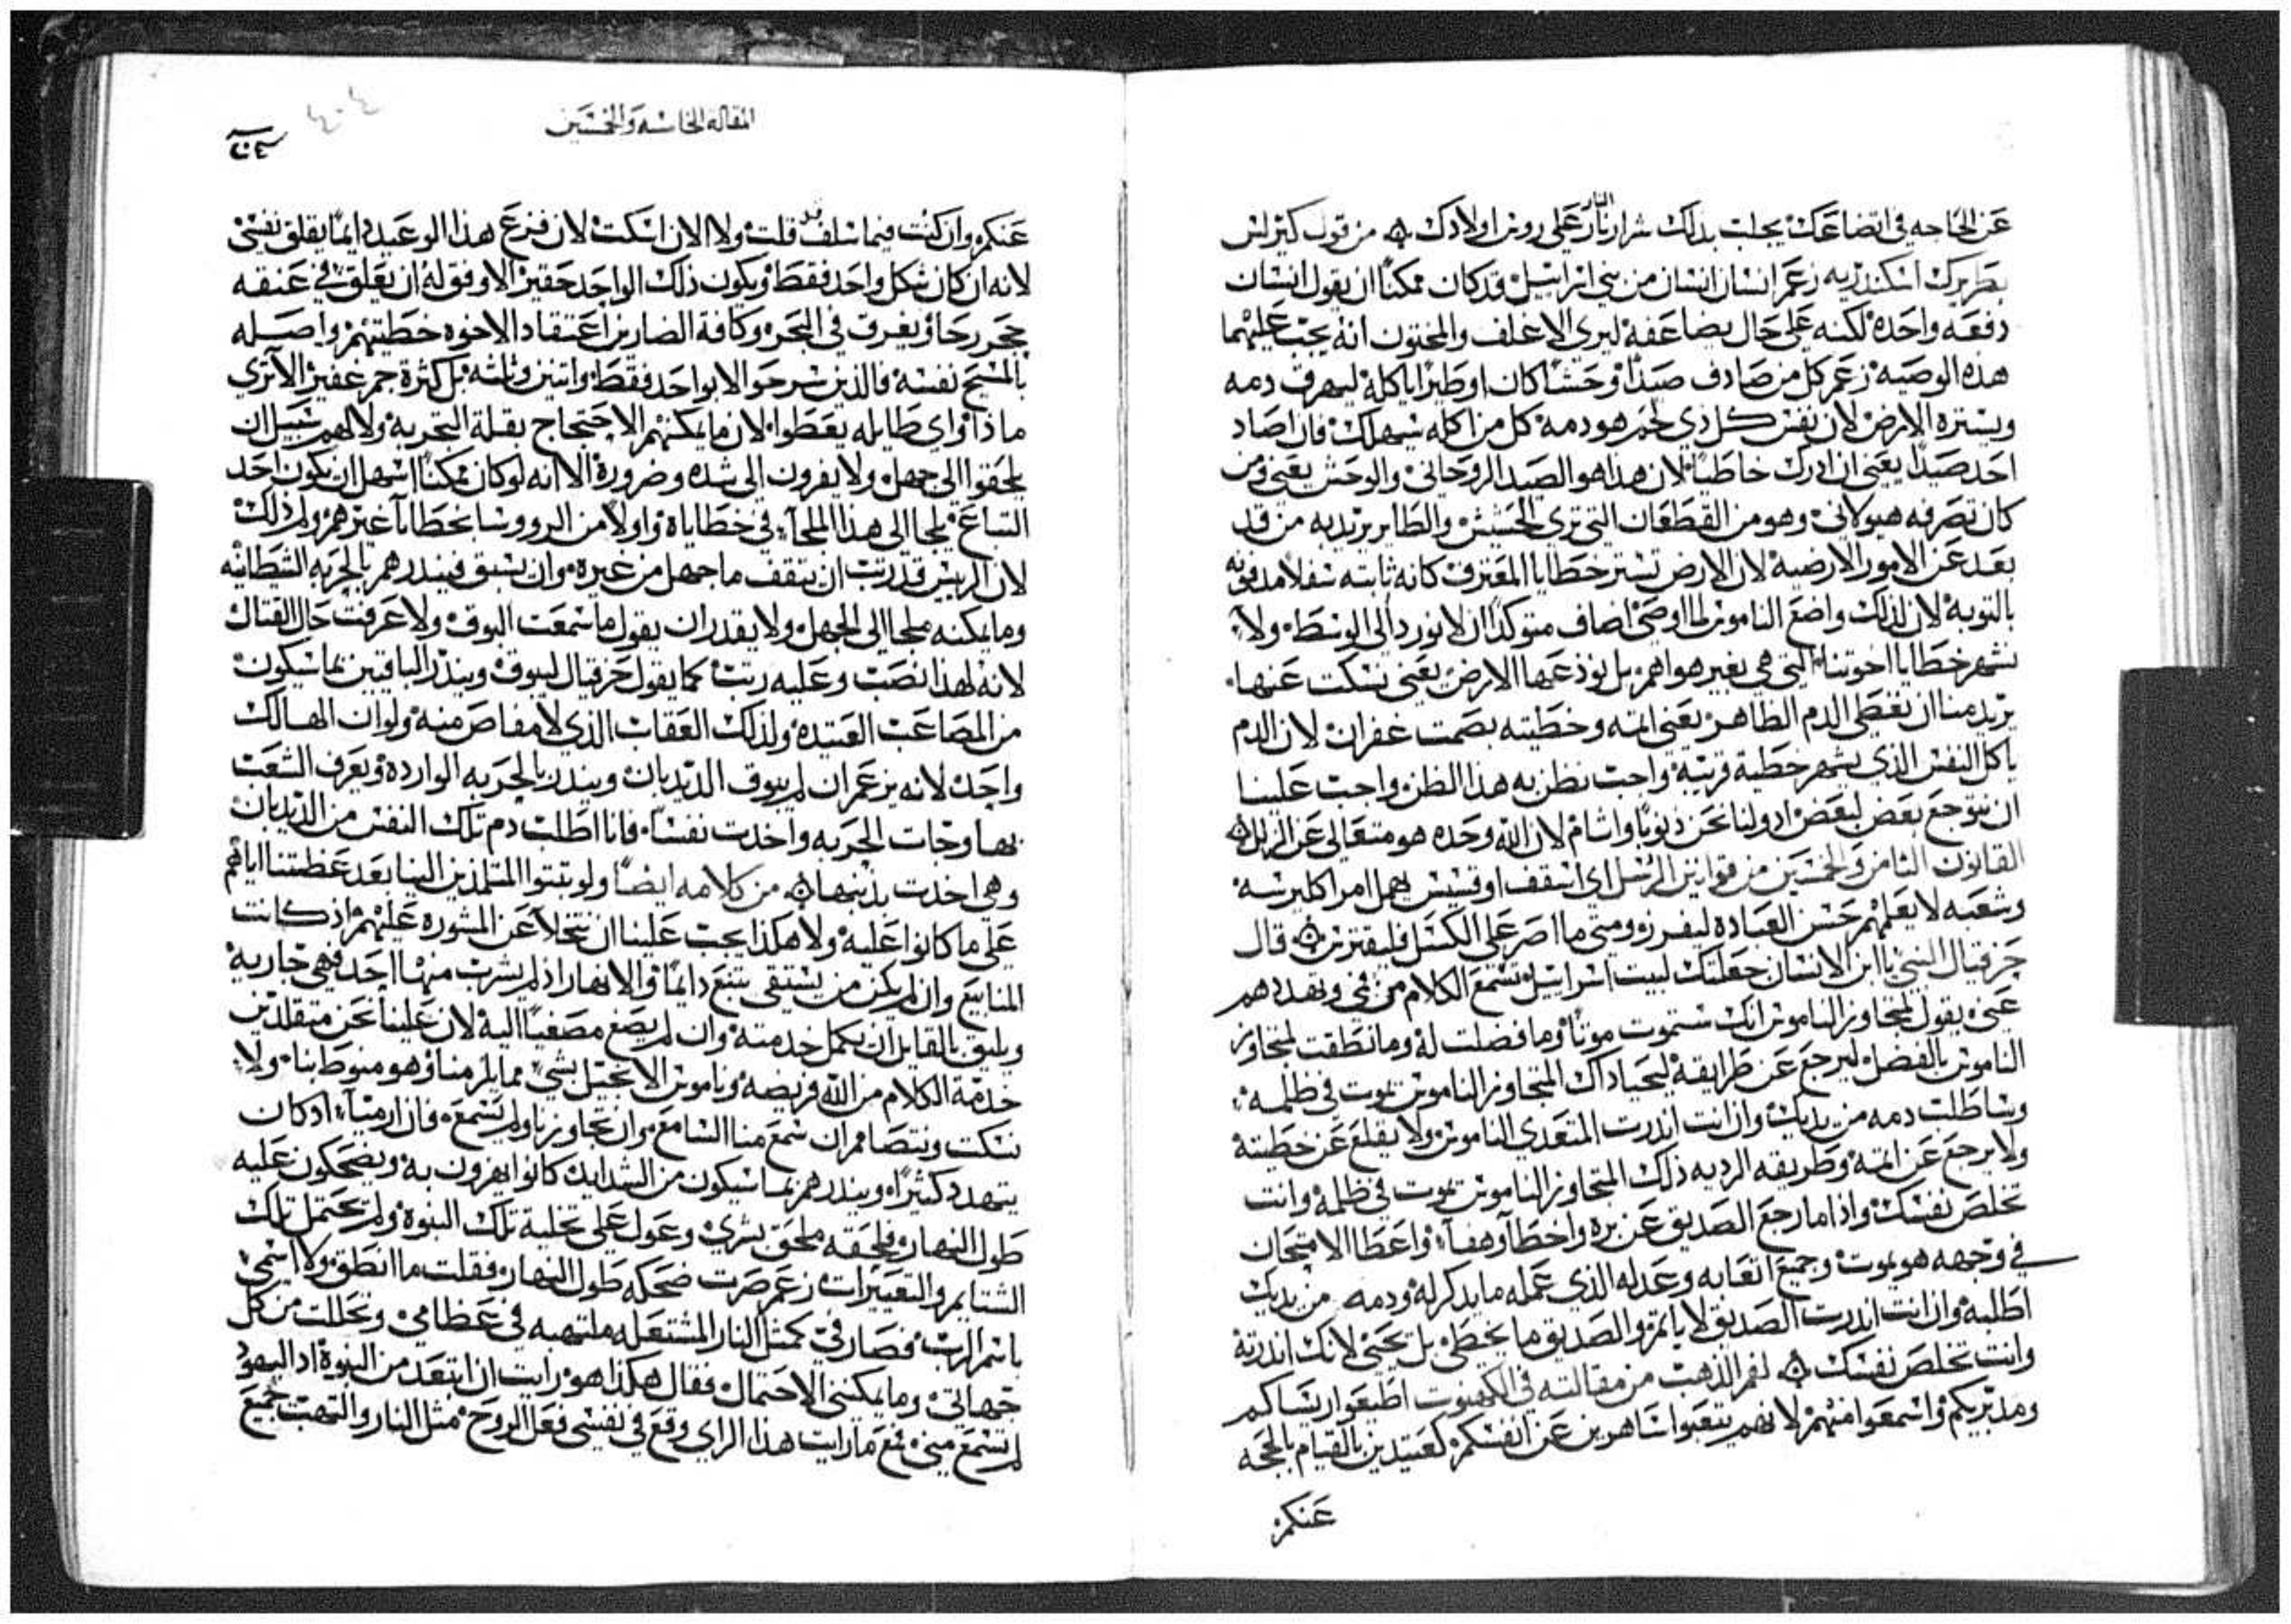 عن الحاجه في اتضاعك يجلب بذلك شرار نار على روس اولادك ۞ من قول كيرلس
بطريرك اسكندريه زعم انسان انسان من بني اسرايل قد كان ممكنًا ان يقول انسان
دفعه واحده لكنه على حال بضاعفه ليرى الاغلف والمختون انه يجب عليهما
هذه الوصيه زعم كل من صادف صيدًا وحشًا كان او طيرًا ياكله ليهرق دمه
ويستره الارض لان نفس كل ذي لحم هو دمه كل من اكله سيهلك فان اصاد
احد صيدًا يعني ان ادرك خاطيًا لان هذا هو الصيد الروحاني والوحش يعني من
كان تصرفه هيولاني وهو من القطعان التي ترى الحشيش والطاير يريد به من قد
بعد عن الامور الارضيه لان الارض تستر خطايا المعترف كانه ثابته سفلا مدفونه
بالتوبه لان لذلك واضع الناموس لما اوصى اضاف متوكدًا ان لا نورد الى الوسط ولا
نشهر خطايا اخوتنا التي هي بغير هواهم بل نوذعها الارض يعني نسكت عنها
يريد منا ان نغطي الدم الظاهر يعني اثمه وخطيته بصمت غفران لان الدم
ياكل النفس الذي يشهر خطية قريبه واجب نظن به هذا الظن واجب علينا
ان نتوجع بعض لبعض اذ ولنا نحن ذنوبًا واثام لان الله وحده هو متعالى عن الزلل ۞
القانون الثامن والخمسين من قوانين الرسل اي اسقف او قسيس يهمل امر اكليرسه
وشعبه لا يعلمهم حسن العباده ليفرز ومتى ما اصر على الكسل فليقترس ۞ قال
حزقيال النبي يا ابن الانسان جعلتك لبيت اسرايل تستمع الكلام من في وتهددهم
عني يقول لمتجاوز الناموس انك ستموت موتًا وما فضلت له وما نطقت لمتجاوز
الناموس بالفضل ليرجع عن طرايقه ليحيا ذاك المتجاوز الناموس يموت في ظلمه
وساطلب دمه من يديك وان انت انذرت المتعدي الناموس ولا يقلع عن خطيته
ولا يرجع عن اثمه وطريقه الرديه ذلك المتجاوز الناموس يموت في ظلمه وانت
تخلص نفسك واذا ما رجع الصديق عن بره واخطا وهفا واعطا الامتحان
في وجهه هو يموت وجميع اتعابه وعدله الذي عمله ما يذكر له ودمه من يديك
اطلبه وان انت انذرت الصديق لا ياثم والصديق ما يخطي بل يحيى لانك انذرته
وانت تخلص نفسك ۞ لفم الذهب من مقالته في الكهنوت اطيعوا ريساكم
ومدبريكم واسمعوا منهم لانهم يتعبوا ساهرين عن انفسكم كعتيدين بالقيام بالحجه
عنكم
المقاله الخامسه والخمسين
٤٠٤
عنكم وان كنت فيما سلف قد قلت ولا الان اسكت لان فزع هذا الوعيد دايمًا يقلق نفسي
لانه ان كان شكل واحد فقط ويكون ذلك الواحد حقير الاوفق له ان يعلق في عنقه
حجر رحا ويغرق في البحر وكافة الضارين اعتقاد الاخوه خطيتهم واصله
بالمسيح نفسه فالذين سرحوا لا بواحد فقط واثنين وثلثه بل كثرة جم غفير الا ترى
ماذا واي طايله يعطوا لان ما يمكنهم الاحتجاج بقلة التجربه ولا لهم سبيل ان
يلحقوا الى جهل ولا يفرون الى شده وضرورة الا انه لو كان ممكنًا اسهل ان يكون احد
التباع يلجا الى هذا الملجا في خطاياه واولا من الرووسا بخطايا غيرهم ولم ذلك
لان الريس قد رتب ان يثقف ما جهل من غيره وان يسبق فينذرهم بالحربه الشيطانيه
وما يمكنه ملجا الى الجهل ولا يقدر ان يقول ما سمعت البوق ولا عرفت حال القتال
لانه لهذا نصب وعليه رتب كما يقول حزقيال ليبوق وينذر الباقين بما سيكون
من المصاعب العتيده ولذلك العقاب الذي لا مفاص منه ولو ان الهالك
واحد لانه يزعم ان لم يبوق الديدبان وينذر بالحربه الوارده ويعرف الشعب
بها وجات الحربه واخذت نفسًا فانا اطلب دم تلك النفس من الديدبان
وهي اخذت بذنبها ۞ من كلامه ايضًا ولو ثبتوا المتلمذين الينا بعد عظتنا اياهم
على ما كانوا عليه ولا هكذا يجب علينا ان نتخلا عن المشوره عليهم اذ كانت
المنابيع وان لم يكن من يستقي تنبع دايمًا والانهار اذ لم يشرب منها احد فهي جاريه
ويليق بالقايل ان يكمل خدمته وان لم يصغ مصغيًا اليه لان علينا نحن متقلدين
خدمة الكلام من الله فريضه وناموس الا نخل بشي مما يلزمنا وهو منوط بنا ولا
نسكت ونتصامم ان سمع منا السامع وان تجاوزنا ولم يسمع فان ارميا اذ كان
يتهدد كثيرًا وينذرهم بما سيكون من الشدايد كانوا يهزون به ويضحكون عليه
طول النهار فلحقه ملحق بشري وعول على تخلية تلك النبوه ولم يحتمل تلك
الشتايم والتعييرات زعم صرت ضحكه طول النهار فقلت ما انطق ولا اسمي
باسم الرب فصار في كمثل النار المشتعله ملتهبه في عظامي وتخللت من كل
جهاتي وما يمكنني الاحتمال فقال هكذا هو رايت ان ابتعد من النبوة اذ اليهود
لم تسمع مني فمع ما رايت هذا الراي وقع في نفسي فعل الروح مثل النار والتهبت جميع